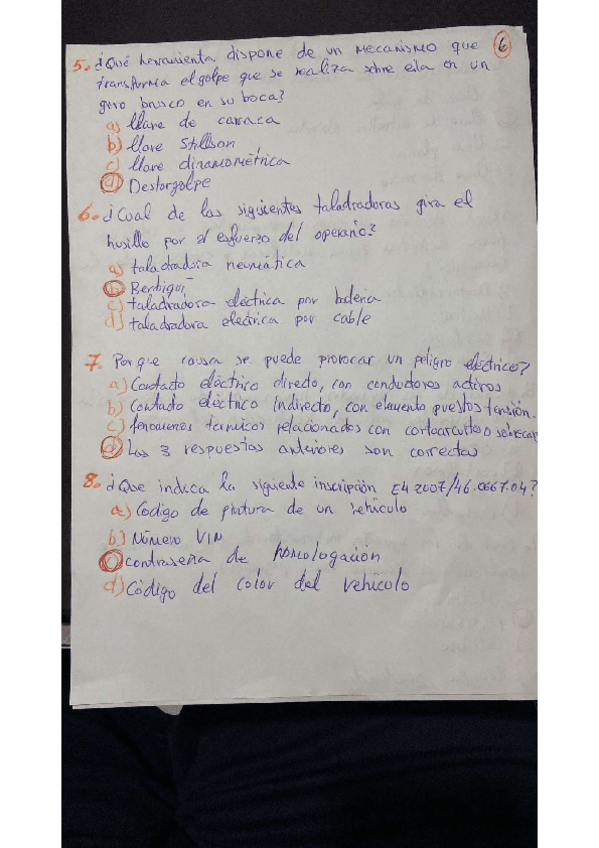 5. ¿Qué herramienta dispone de un mecanismo que
transforma el golpe que se realiza sobre ella en un
giro brusco en su boca?
a) llave de carraca
b) llave Stillson
c) llave dinamométrica
d) Destorgolpe
6
6. ¿Cual de las siguientes taladradoras gira el
husillo por el esfuerzo del operario?
a) taladradora neumática
b) Berbiquí
c) taladradora eléctrica por bateria
d) taladradora electrica por cable
7. Por que causa se puede provocar un peligro eléctrico?
a) Contacto eléctrico directo, con conductores activos
b) Contacto eléctrico indirecto, con elemento puestos tensión.
c) fenomenos termicos relacionados con cortocircuito o sobrecar
d) Las 3 respuestas anteriores son correctas
8. ¿Que indica la siguiente inscripción E4 2007/46.0667.04?
a) Codigo de pintura de un vehiculo
b) Número VIN
c) contraseña de homologación
d) Código del color del vehiculo